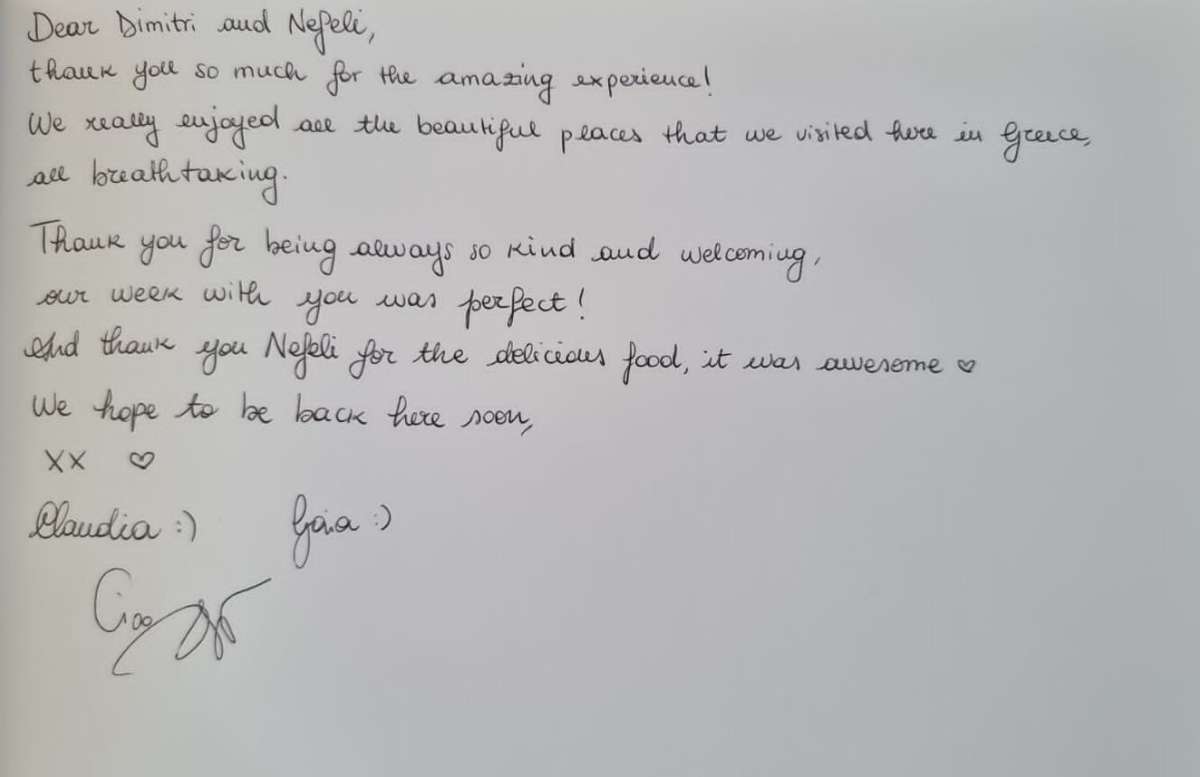 Dear Dimitri and Nefeli,
thank you so much for the amazing experience!
We really enjoyed all the beautiful places that we visited here in Greece,
all breathtaking.
Thank you for being always so kind and welcoming,
our week with you was perfect!
And thank you Nefeli for the delicious food, it was awesome ♡
We hope to be back here soon,
xx ♡
Claudia :) Gaia :)
Ciao